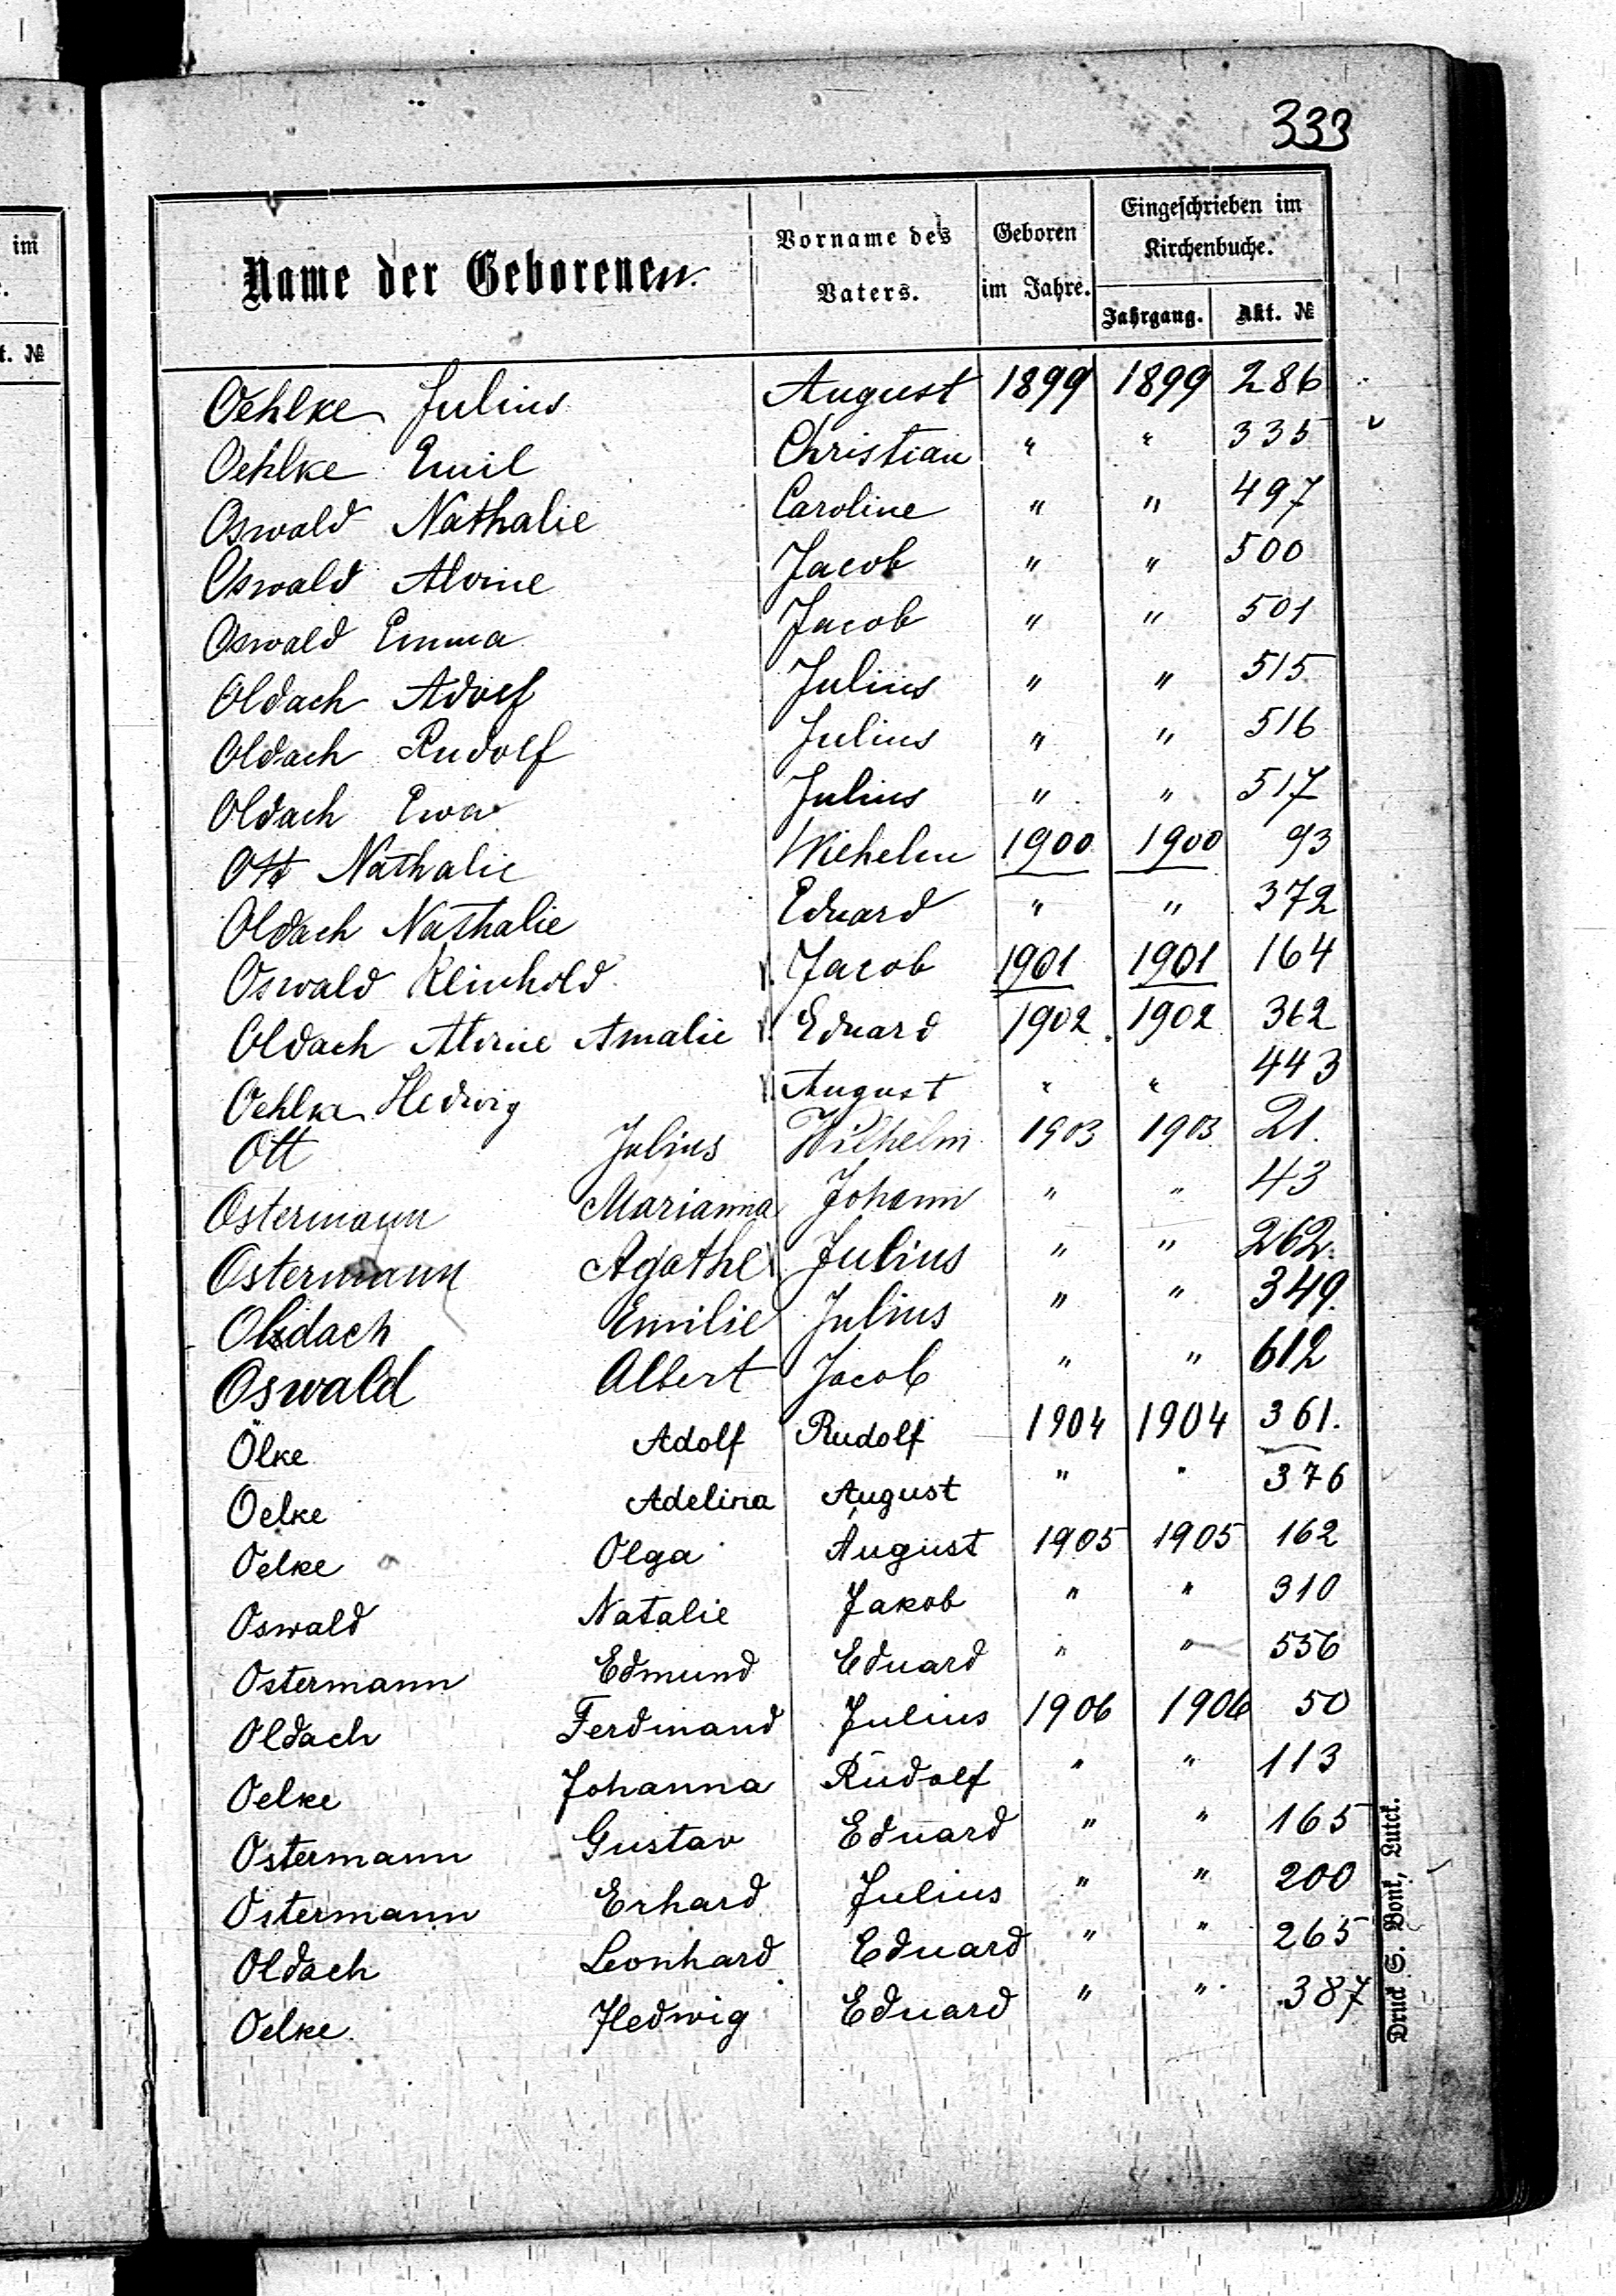 333
im
t. №
Name der Geborenen.
Vorname des Vaters.
Geboren im Jahre.
Eingeschrieben im Kirchenbuche.
Jahrgang.
Akt. №
Oehlke Julius August 1899 1899 286
Oehlke Emil Christian " " 335
Oswald Nathalie Caroline " " 497
Oswald Alvine Jacob " " 500
Oswald Emma Jacob " " 501
Oldach Adolf Julius " " 515
Oldach Rudolf Julius " " 516
Oldach Ewa Julius " " 517
Ott Nathalie Wilhelm 1900 1900 93
Oldach Nathalie Eduard " " 372
Oswald Reinhold Jacob 1901 1901 164
Oldach Alvine Amalie Eduard 1902 1902 362
Oehlke Hedwig August " " 443
Ott Julius Wilhelm 1903 1903 21.
Ostermann Marianna Johann " " 43
Ostermann Agathe Julius " " 262.
Oldach Emilie Julius " " 349.
Oswald Albert Jacob " " 612
Ölke Adolf Rudolf 1904 1904 361.
Oelke Adelina August " " 376
Oelke Olga August 1905 1905 162
Oswald Natalie Jakob " " 310
Ostermann Edmund Eduard " " 556
Oldach Ferdinand Julius 1906 1906 50
Oelke Johanna Rudolf " " 113
Ostermann Gustav Eduard " " 165
Ostermann Erhard Julius " " 200
Oldach Leonhard Eduard " " 265
Oelke Hedwig Eduard " " 387
Druck S. Bonk, Lutck.